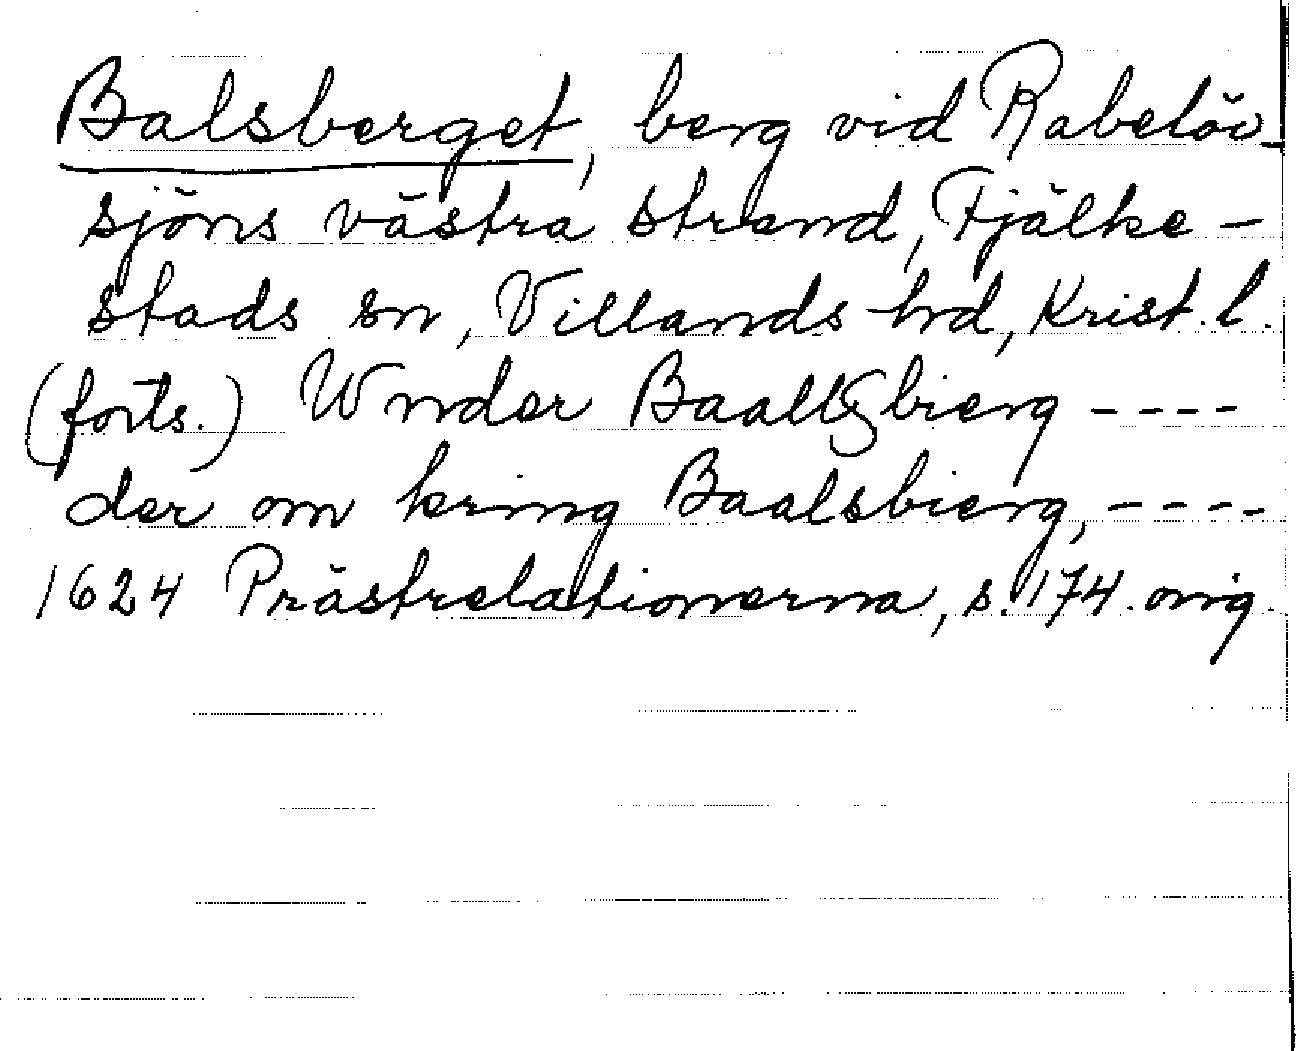 Balsberget, berg vid Rabelöv-
sjöns västra strand, Fjälke-
stads sn, Villands hd, Krist. l.
(forts.) Wnder BaallSbierg ----
der om kring Baalsbierg, ----
1624 Prästrelationerna, s. 174. orig.